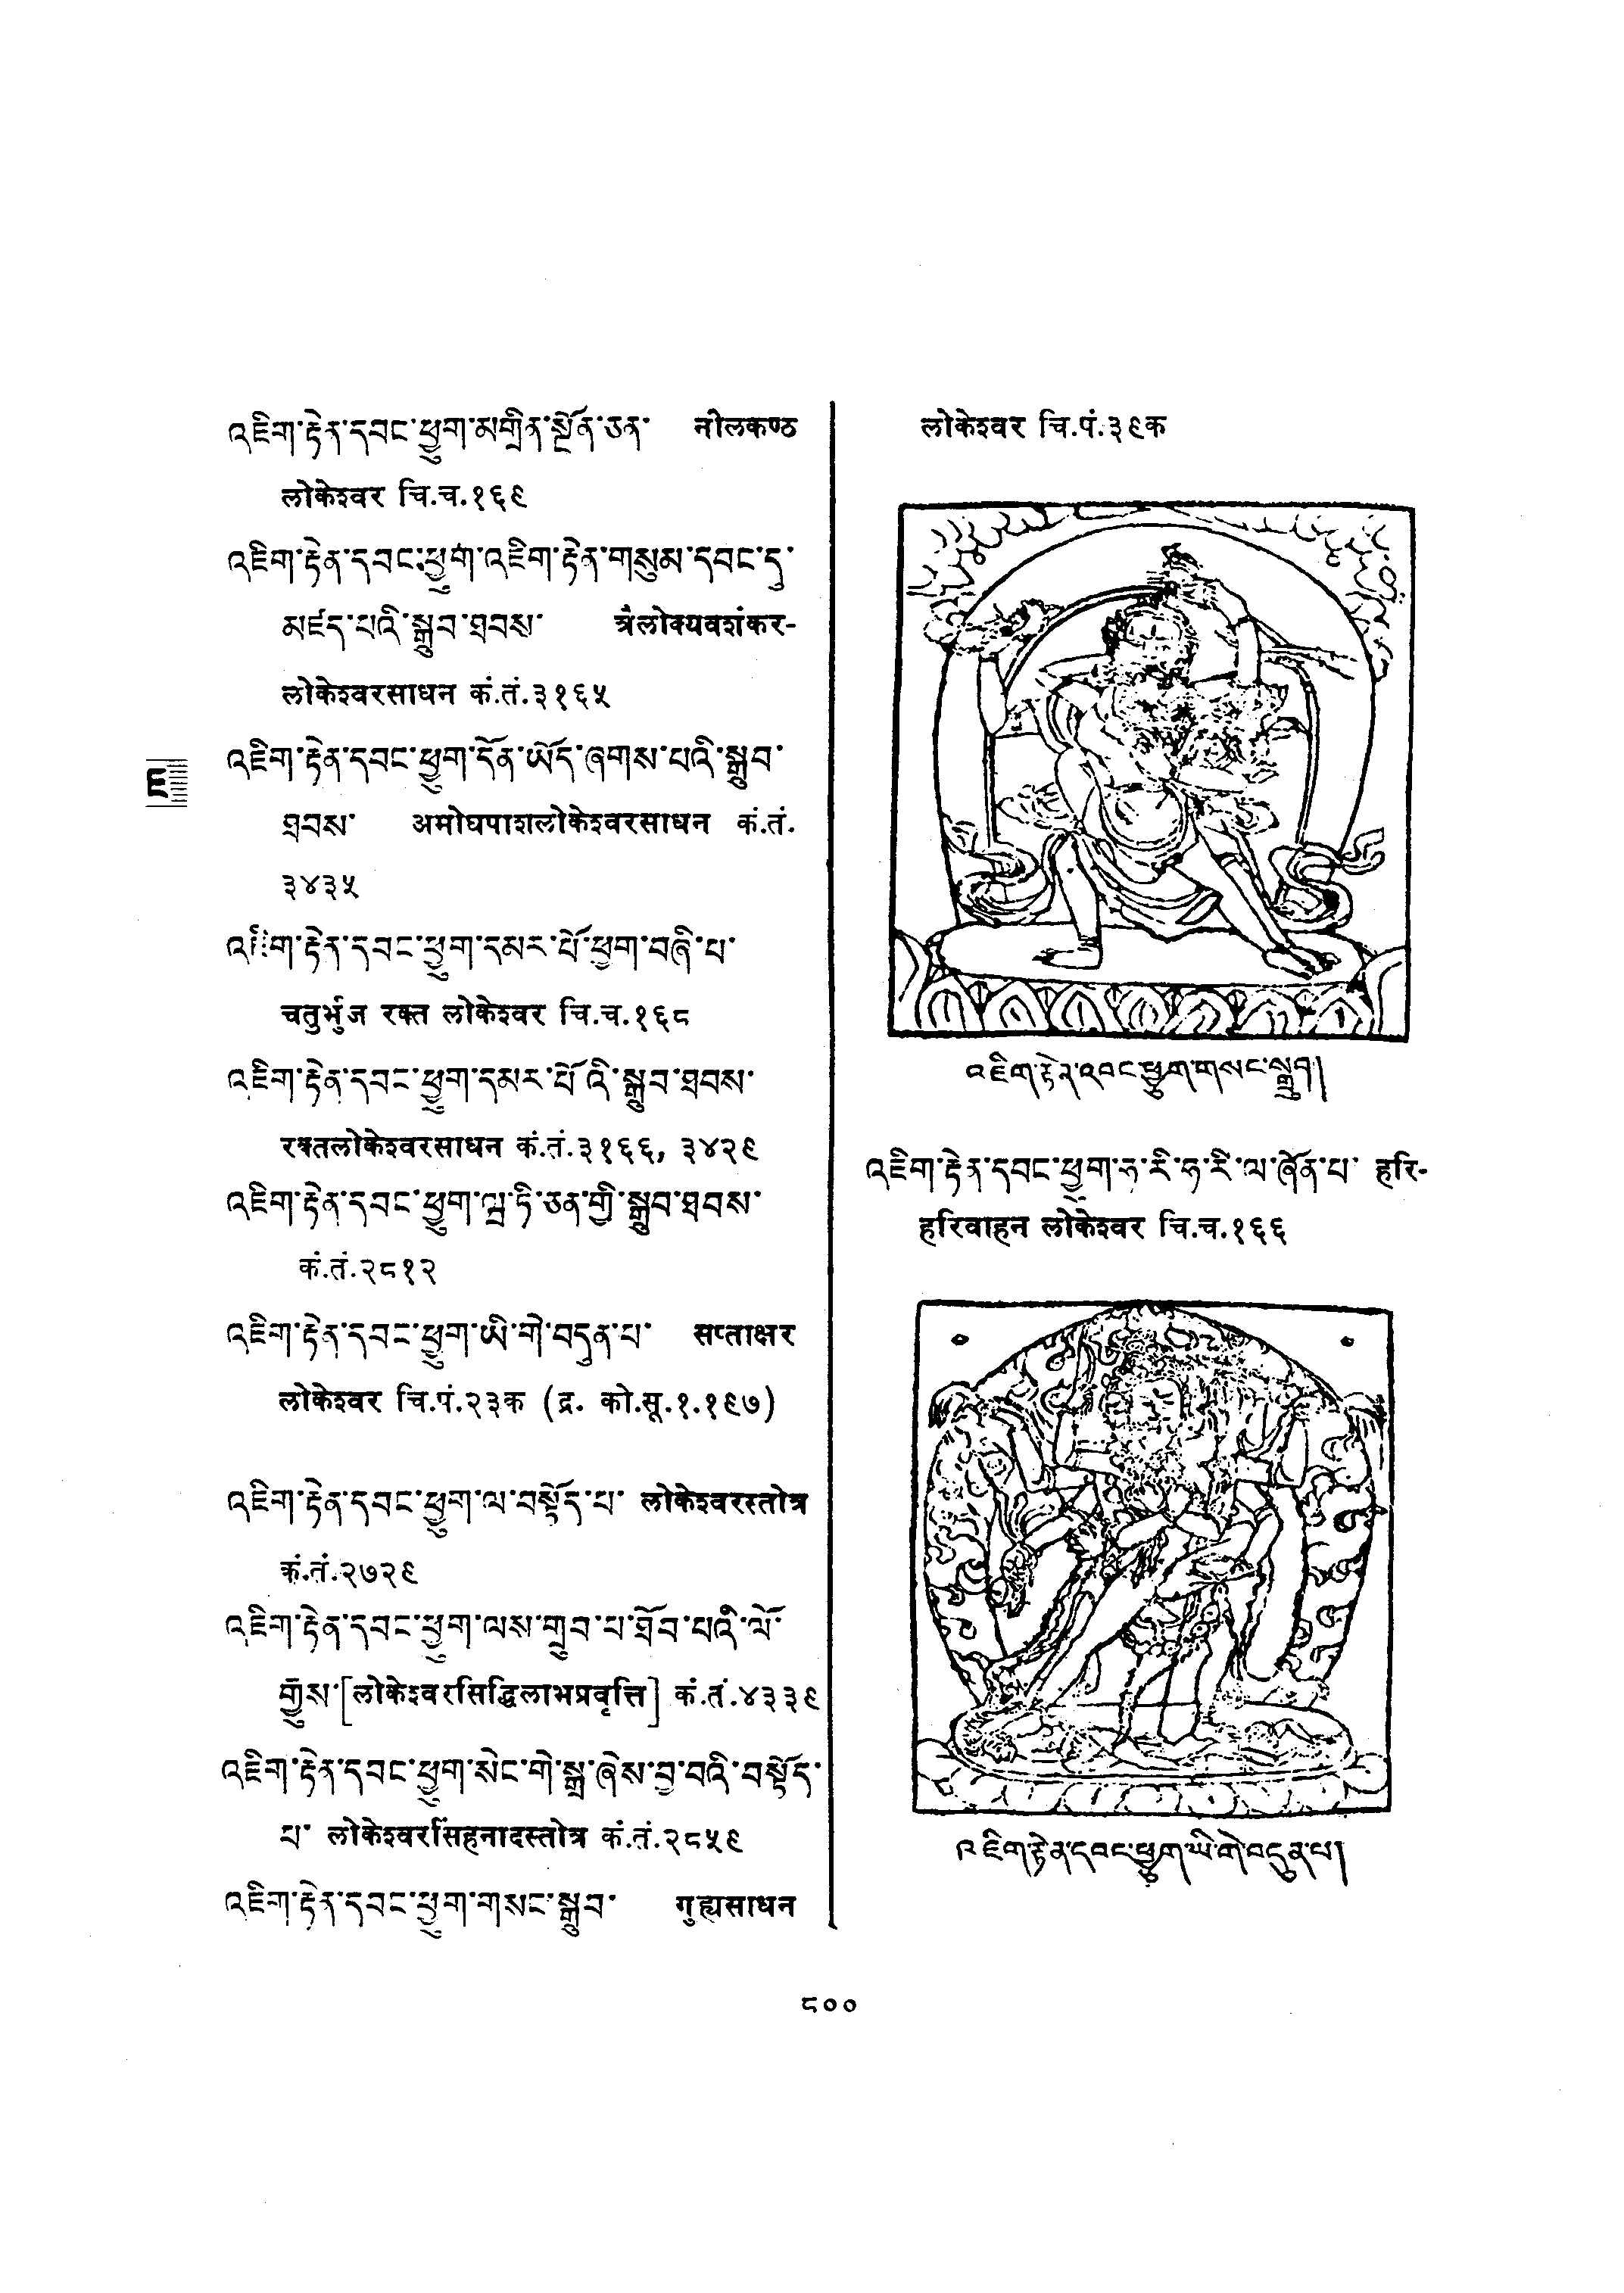 འཇིག་རྟེན་དབང་ཕྱུག་མགྲིན་སྔོན་ཅན་ नीलकण्ठ
लोकेश्वर चि.च.१६९
འཇིག་རྟེན་དབང་ཕྱུག་འཇིག་རྟེན་གསུམ་དབང་དུ་
མཛད་པའི་སྒྲུབ་ཐབས་ त्रैलोक्यवशंकर-
लोकेश्वरसाधन कं.तं.३१६५
འཇིག་རྟེན་དབང་ཕྱུག་དོན་ཡོད་ཞགས་པའི་སྒྲུབ་
ཐབས་ अमोघपाशलोकेश्वरसाधन कं.तं.
३४३५
འཇིག་རྟེན་དབང་ཕྱུག་དམར་པོ་ཕྱག་བཞི་པ་
चतुर्भुज रक्त लोकेश्वर चि.च.१६८
འཇིག་རྟེན་དབང་ཕྱུག་དམར་པོའི་སྒྲུབ་ཐབས་
रक्तलोकेश्वरसाधन कं.तं.३१६६, ३४२९
འཇིག་རྟེན་དབང་ཕྱུག་ཏི་ཅན་གྱི་སྒྲུབ་ཐབས་
कं.तं.२८१२
འཇིག་རྟེན་དབང་ཕྱུག་ཡི་གེ་བདུན་པ་ सप्ताक्षर
लोकेश्वर चि.पं.२३क (द्र. को.सू.१.१९७)
འཇིག་རྟེན་དབང་ཕྱུག་ལ་བསྟོད་པ་ लोकेश्वरस्तोत्र
कं.तं.२७२९
འཇིག་རྟེན་དབང་ཕྱུག་ལས་གྲུབ་པ་ཐོབ་པའི་ལོ་
རྒྱུས་[लोकेश्वरसिद्धिलाभप्रवृत्ति] कं.तं.४३३९
འཇིག་རྟེན་དབང་ཕྱུག་སེང་གེ་སྒྲ་ཞེས་བྱ་བའི་བསྟོད་
པ་ लोकेश्वरसिंहनादस्तोत्र कं.तं.२८५९
འཇིག་རྟེན་དབང་ཕྱུག་གསང་སྒྲུབ་ गुह्यसाधन
लोकेश्वर चि.पं.३९क
འཇིག་རྟེན་དབང་ཕྱུག་གསང་སྒྲུབ།
འཇིག་རྟེན་དབང་ཕྱུག་ཧ་རི་ཧ་རི་ལ་ཞོན་པ་ हरि-
हरिवाहन लोकेश्वर चि.च.१६६
འཇིག་རྟེན་དབང་ཕྱུག་ཡི་གེ་བདུན་པ།
ཇ
८००